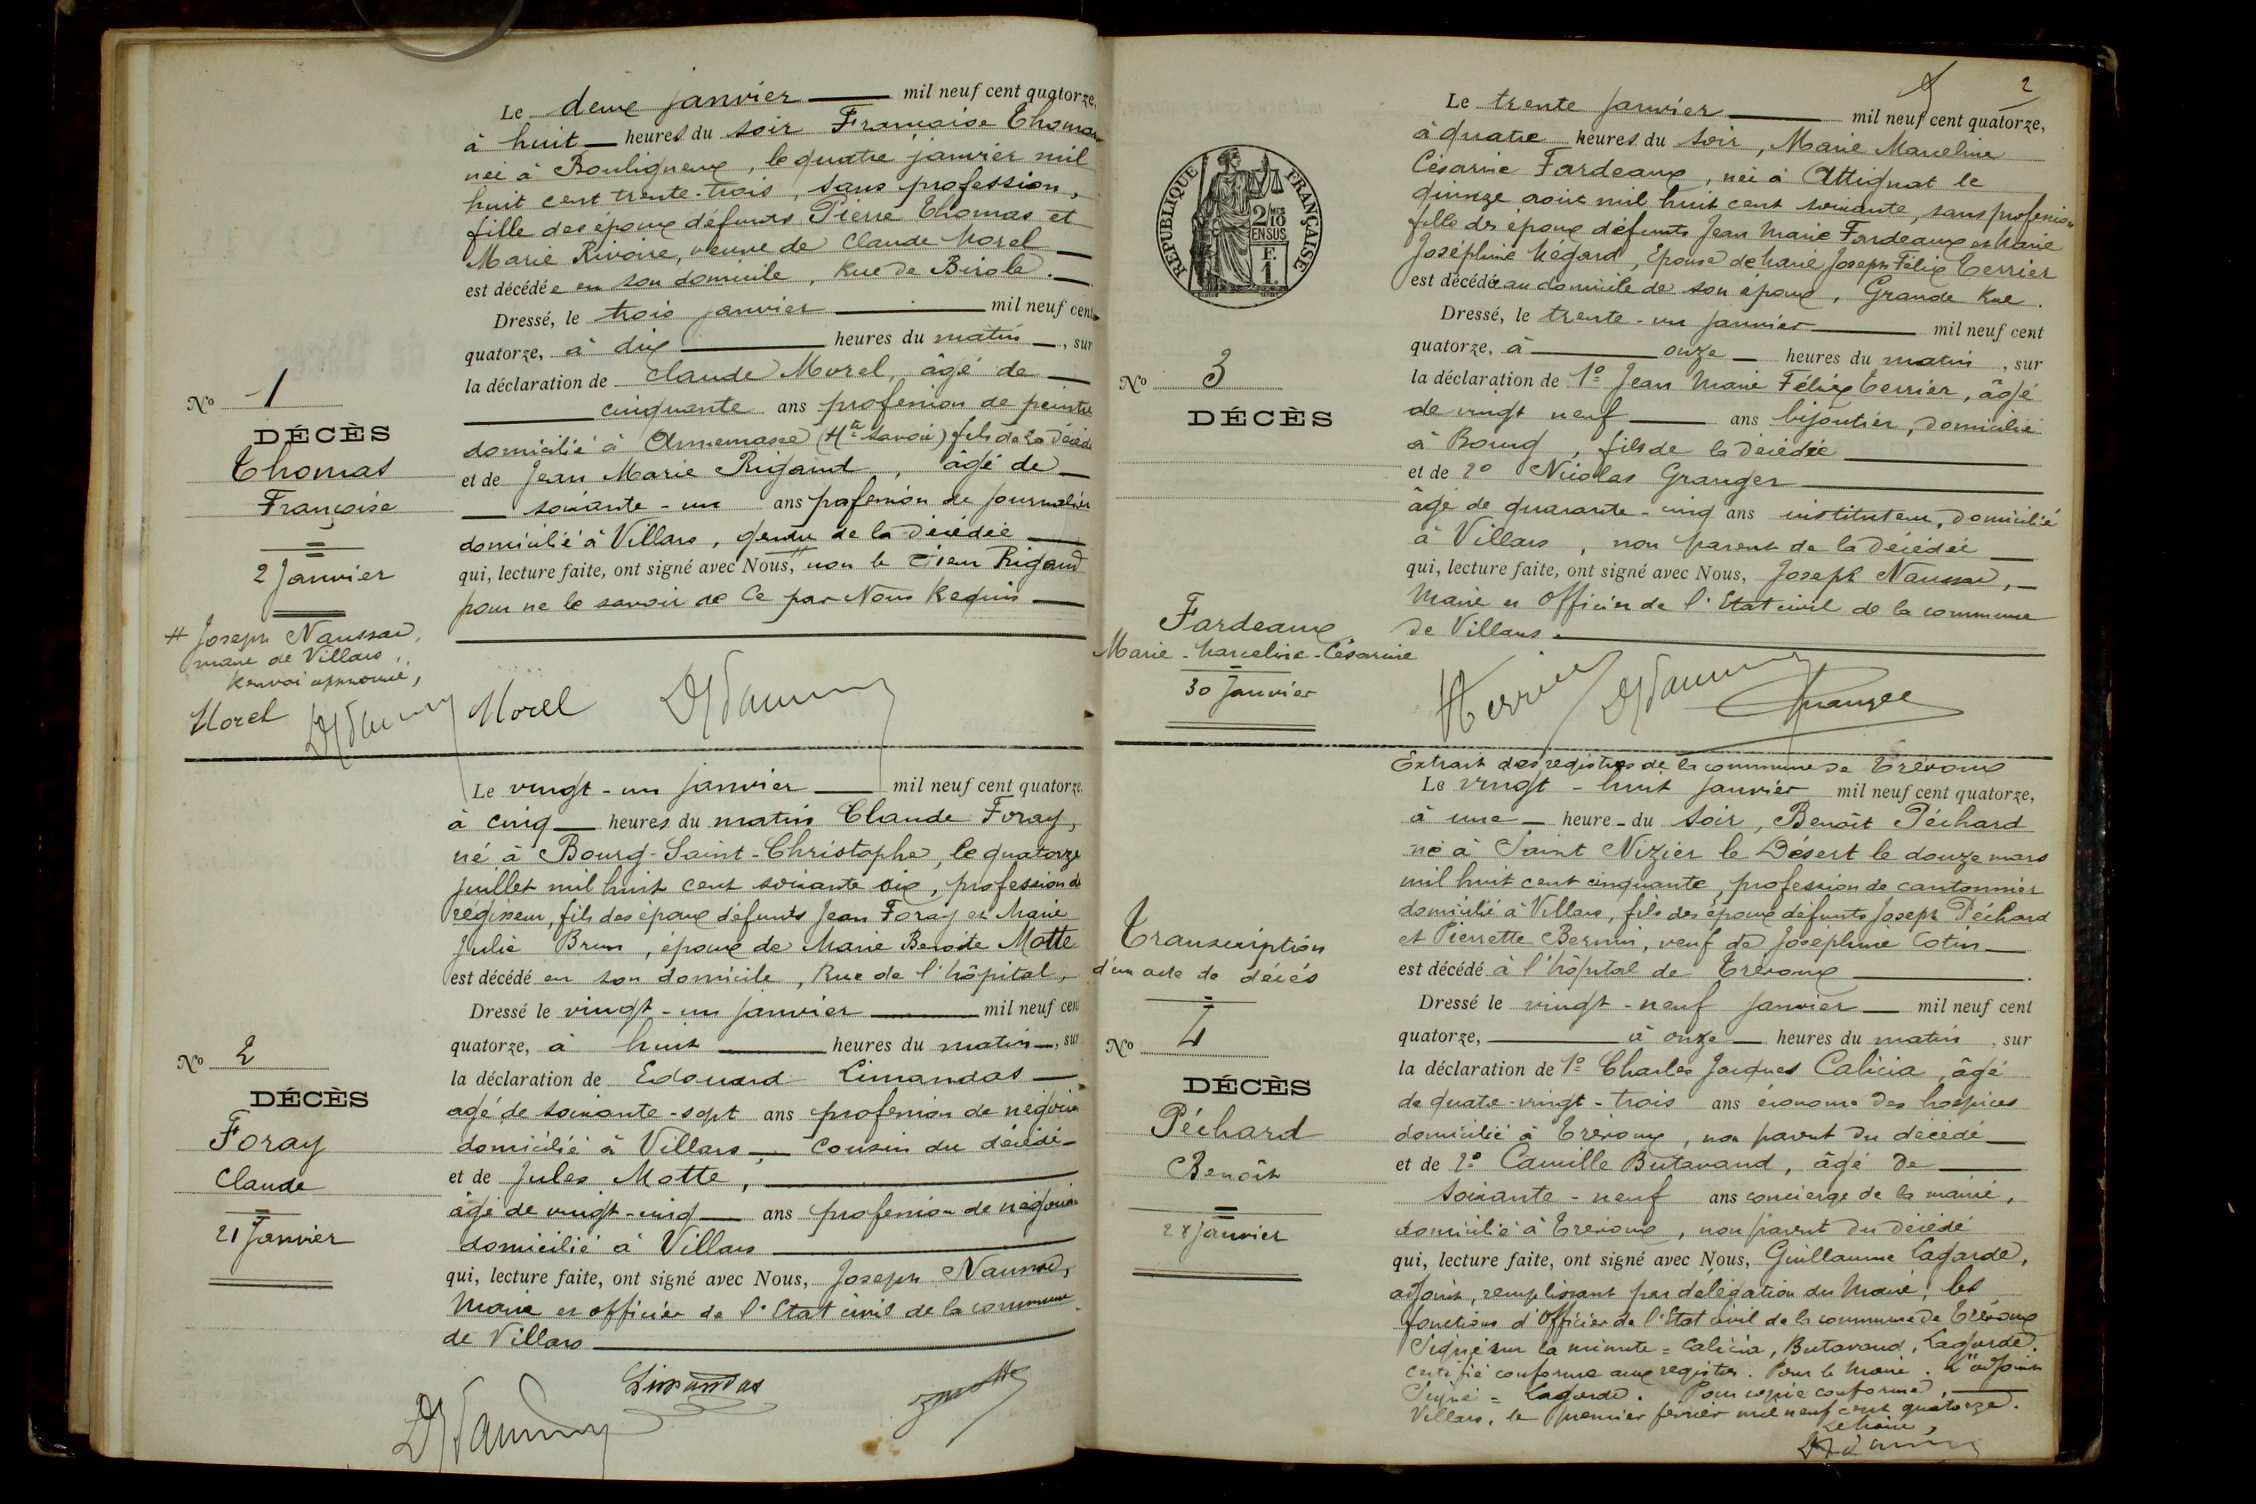 Le deux janvier mil neuf cent quatorze,
à huit heures du soir Françoise Thomas
née à Bouligneux, le quatre janvier mil
huit cent trente-trois, sans profession,
fille des époux défunts Pierre Thomas et
Marie Rivoire, veuve de Claude Morel
est décédée en son domicile, Rue de Birole.
Dressé, le trois janvier mil neuf cent
quatorze, à dix heures du matin, sur
la déclaration de Claude Morel, âgé de
cinquante ans profession de peintre
domicilié à Annemasse (Hte Savoie) fils de la décédée
et de Jean Marie Rigaud, âgé de
soixante-un ans profession de journalier
domicilié à Villars, gendre de la décédée
qui, lecture faite, ont signé avec Nous, # non le sieur Rigaud
pour ne le savoir de ce par Nous Requis
No 1
DÉCÈS
Thomas
Françoise
2 Janvier
# Joseph Naussac,
maire de Villars,
Renvoi approuvé,
Morel
Morel
Le vingt-un janvier mil neuf cent quatorze,
à cinq heures du matin Claude Foray,
né à Bourg-Saint-Christophe, le quatorze
juillet mil huit cent soixante six, profession de
régisseur, fils des époux défunts Jean Foray et Marie
Julie Brun, époux de Marie Benoîte Motte
est décédé en son domicile, Rue de l'hôpital,
Dressé le vingt-un janvier mil neuf cent
quatorze, à huit heures du matin, sur
la déclaration de Edouard Limandas
agé de soixante-sept ans profession de négociant
domicilié à Villars, cousin du décédé
et de Jules Motte,
âgé de vingt-cinq ans profession de négociant
domicilié à Villars
qui, lecture faite, ont signé avec Nous, Joseph Naussac,
Maire et officier de l'Etat civil de la commune
de Villars
No 2
DÉCÈS
Foray
Claude
21 Janvier
Limandas
JMotte
2
Le trente janvier mil neuf cent quatorze,
à quatre heures du soir, Marie Marceline
Césarine Fardeaux, née à Attignat le
quinze août mil huit cent soixante, sans profession
fille des époux défunts Jean Marie Fardeaux et Marie
Joséphine Mégard, Epouse de Marie Joseph Félix Terrier
est décédée au domicile de son époux, Grande Rue.
Dressé, le trente-un janvier mil neuf cent
quatorze, à onze heures du matin, sur
la déclaration de 1º Jean Marie Félix Terrier, âgé
de vingt neuf ans bijoutier, domicilié
à Bourg, fils de la décédée
et de 2º Nicolas Granger
âgé de quarante-cinq ans instituteur, domicilié
à Villars, non parent de la décédée
qui, lecture faite, ont signé avec Nous, Joseph Naussac,
Maire et Officier de l'Etat civil de la commune
de Villars.
RÉPUBLIQUE FRANÇAISE
2/10
EN SUS
F.
1
No 3
DÉCÈS
Fardeaux
Marie-Marceline-Césarine
30 Janvier
Terrier
Granger
Extrait des registres de la commune de Trévoux
Le vingt-huit janvier mil neuf cent quatorze,
à une heure du soir, Benoît Péchard
né à Saint Nizier le Désert le douze mars
mil huit cent cinquante, profession de cantonnier
domicilié à Villars, fils des époux défunts Joseph Péchard
et Pierrette Bernin, veuf de Joséphine Cotin
est décédé à l'hôpital de Trévoux
Dressé le vingt-neuf janvier mil neuf cent
quatorze, à onze heures du matin, sur
la déclaration de 1º Charles Jacques Calicia, âgé
de quatre-vingt-trois ans économe des hospices
domicilié à Trévoux, non parent du décédé
et de 2º Camille Butavand, âgé de
soixante-neuf ans concierge de la mairie,
domicilié à Trévoux, non parent du décédé
qui, lecture faite, ont signé avec Nous, Guillaume Lagarde,
adjoint, remplissant par délégation du Maire, les
fonctions d'Officier de l'Etat civil de la commune de Trévoux
Signé sur la minute = Calicia, Butavand, Lagarde.
Certifié conforme aux registres. Pour le Maire. L'adjoint
Signé = Lagarde. Pour copie conforme,
Villars, le premier février mil neuf cent quatorze.
Le Maire,
Transcription
d'un acte de décés
No 4
DÉCÈS
Péchard
Benoît
28 Janvier